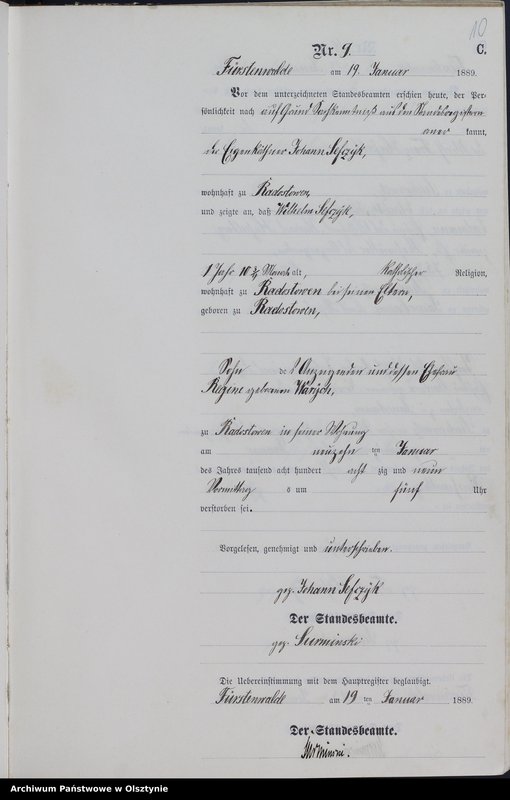 10
Nr. 9.
C.
Fürstenwalde am 19. Januar 1889.
Vor dem unterzeichneten Standesbeamten erschien heute, der Per-
sönlichkeit nach auf Grund
kannt,
der Eigenkäthner Johann
wohnhaft zu Radostowen,
und zeigte an, daß Wilhelm
1 Jahr 10 ¾ Monat alt, katholischer Religion,
wohnhaft zu Radostowen bei seinen Eltern,
geboren zu Radostowen,
Sohn des Anzeigenden und dessen Ehefrau
Regine geborenen
zu Radostowen in seiner Wohnung
am neunzehn ten Januar
des Jahres tausend acht hundert acht zig und neun
Vormittags um fünf Uhr
verstorben sei.
Vorgelesen, genehmigt und unterschrieben.
gez. Johann
Der Standesbeamte.
gez.
Die Uebereinstimmung mit dem Hauptregister beglaubigt.
Fürstenwalde am 19 ten Januar 1889.
Der Standesbeamte.
Archiwum Państwowe w Olsztynie